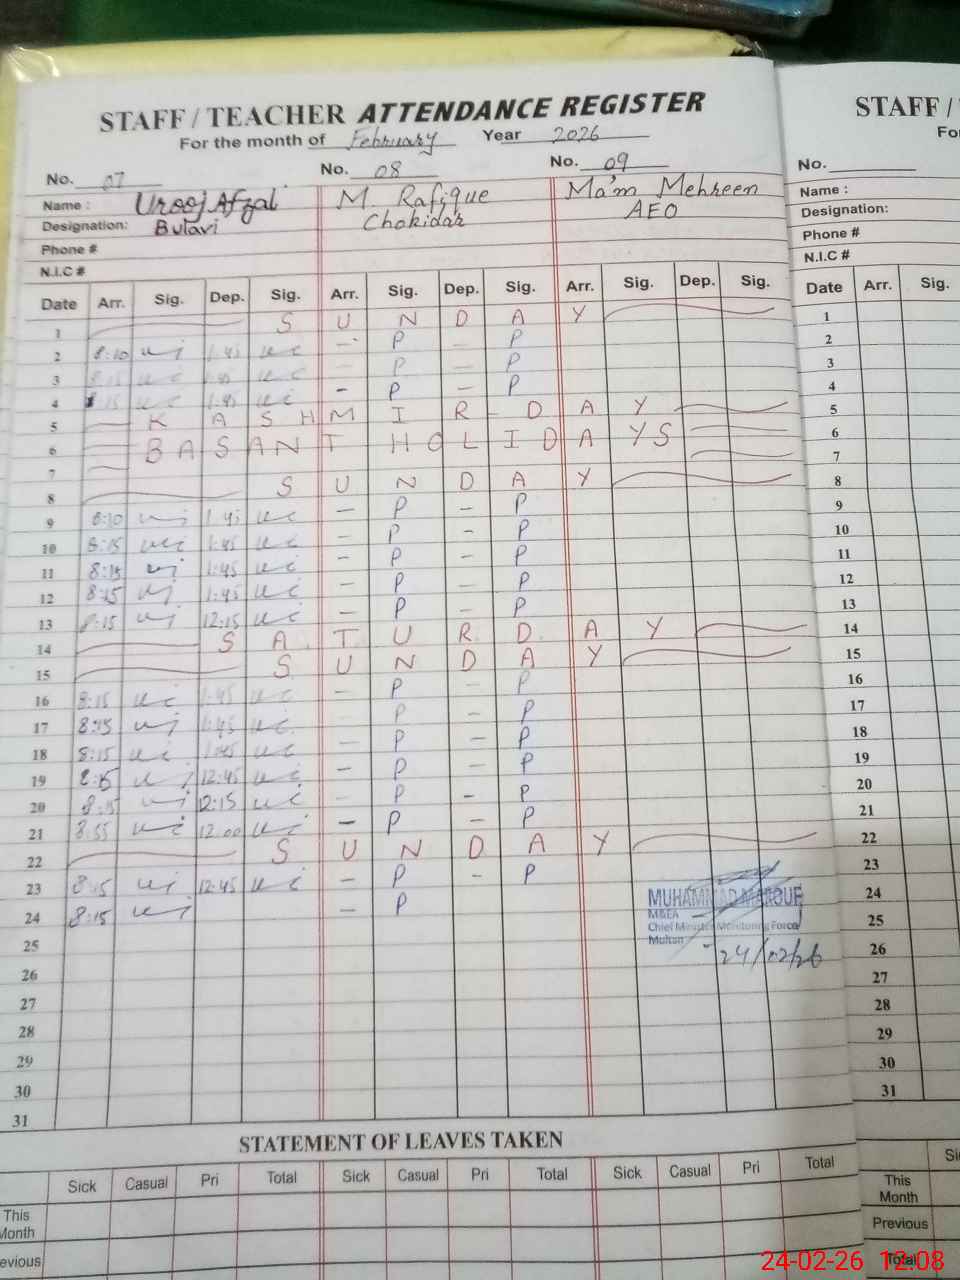 STAFF / TEACHER ATTENDANCE REGISTER
For the month of February Year 2026
No. 07 No. 08 No. 09
Name : Urooj Afzal M. Rafique Ma'm Mehreen
Designation: Bulavi Chokidar AEO
Phone #
N.I.C #
Date Arr. Sig. Dep. Sig. Arr. Sig. Dep. Sig. Arr. Sig. Dep. Sig.
1 S U N D A Y
2 8:10 1:45 - P - P
3 8:15 1:45 - P - P
4 8:15 1:45 - P - P
5 K A S H M I R D A Y
6 B A S A N T H O L I D A Y S
7
8 S U N D A Y
9 8:10 1:45 - P - P
10 8:15 1:45 - P - P
11 8:15 1:45 - P - P
12 8:15 1:45 - P - P
13 8:15 12:15 - P - P
14 S A T U R D A Y
15 S U N D A Y
16 8:15 1:45 - P - P
17 8:15 1:45 - P - P
18 8:15 1:45 - P - P
19 8:15 12:45 - P - P
20 8:15 12:15 - P - P
21 8:55 12:00 - P - P
22 S U N D A Y
23 8:15 12:45 - P - P
24 8:15 - P
25
26
27
28
29
30
31
MUHAMMAD
M&EA
Chief Minister Monitoring Force
Multan
24/02/26
STATEMENT OF LEAVES TAKEN
Sick Casual Pri Total Sick Casual Pri Total Sick Casual Pri Total
This Month
evious
STAFF /
No.
Name :
Designation:
Phone #
N.I.C #
Date Arr. Sig.
1
2
3
4
5
6
7
8
9
10
11
12
13
14
15
16
17
18
19
20
21
22
23
24
25
26
27
28
29
30
31
This Month
Previous
Total
24-02-26 12:08